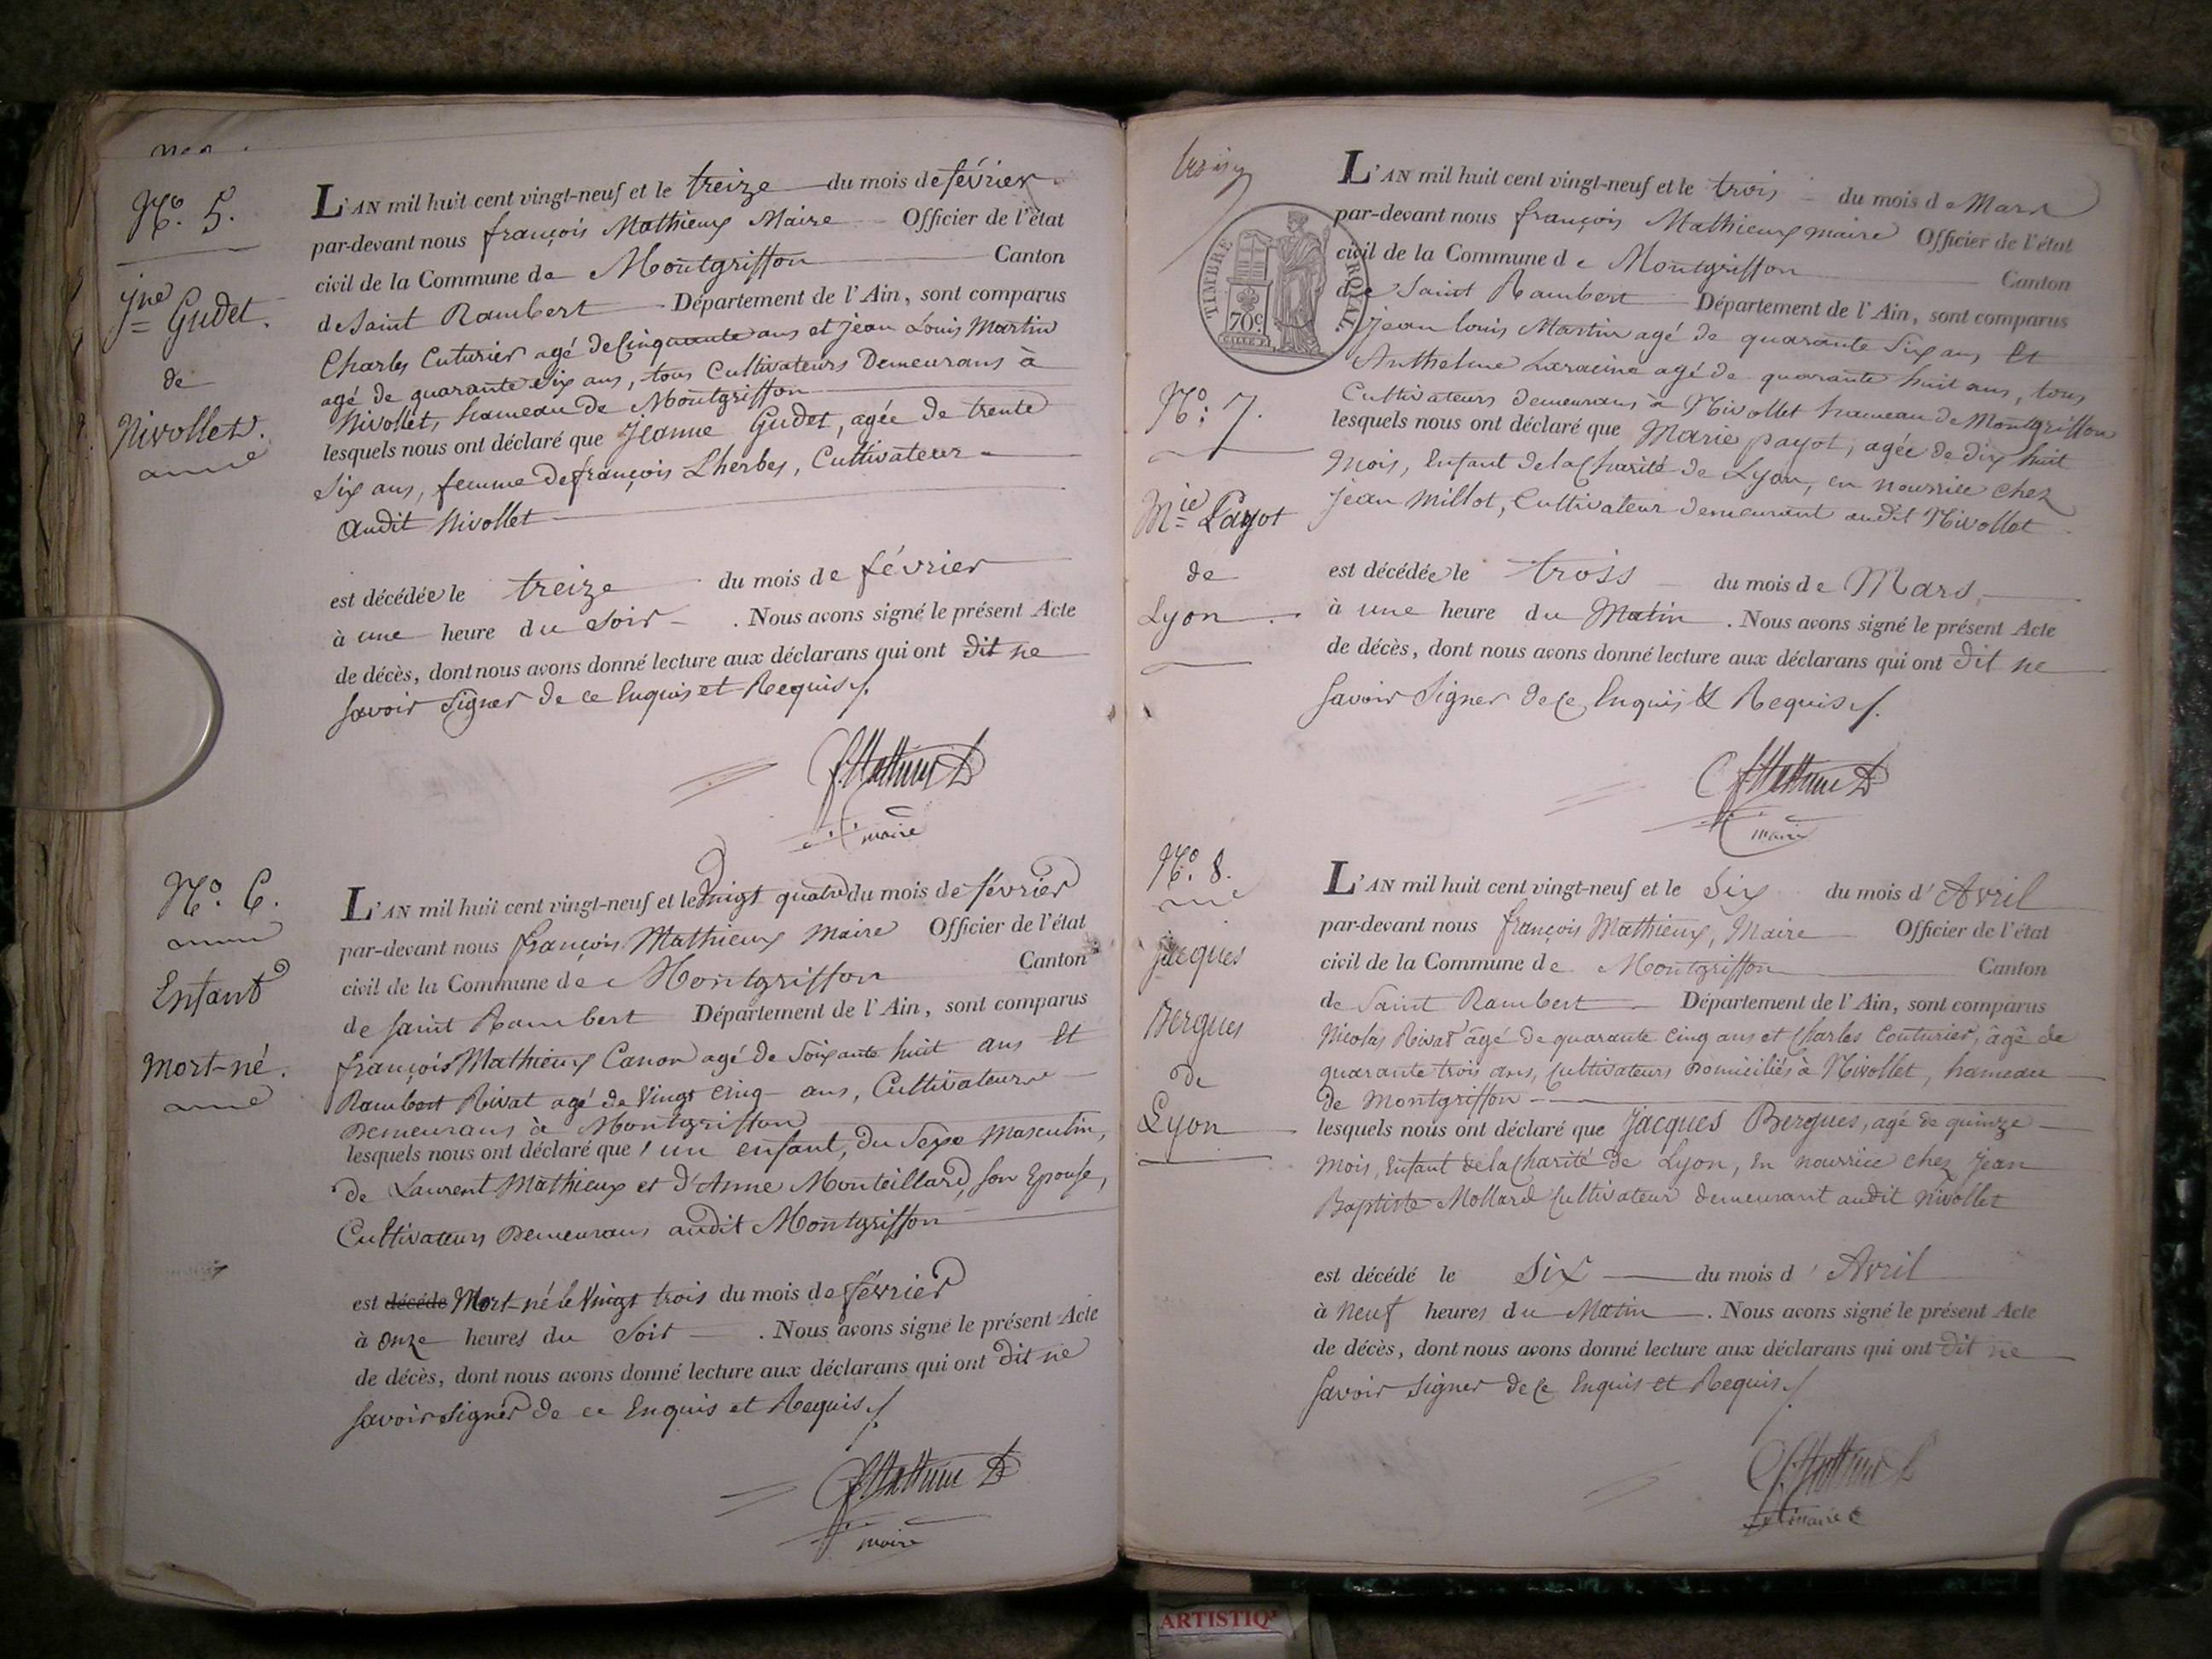 N.° 5.
J.ne Gudet.
de
Nivollet.
L'AN mil huit cent vingt-neuf et le treize du mois de février
par-devant nous françois Mathieux Maire Officier de l'état
civil de la Commune de Montgriffon Canton
de Saint Rambert Département de l'Ain, sont comparus
Charles Cuturier agé de Cinquante ans et jean Louis Martin
agé de quarante six ans, tous Cultivateurs Demeurans à
Nivollet, hameau de Montgriffon
lesquels nous ont déclaré que Jeanne Gudet, agée de trente
Six ans, femme de françois Lherbes, Cultivateur
audit Nivollet
est décédée le treize du mois de février
à une heure du Soir . Nous avons signé le présent Acte
de décès, dont nous avons donné lecture aux déclarans qui ont dit ne
Savoir Signer de ce Enquis et Requis ./.
f. Mathieux
maire
N.° 6.
Enfant
Mort-né.
L'AN mil huit cent vingt-neuf et le Vingt quatre du mois de février
par-devant nous françois Mathieux Maire Officier de l'état
civil de la Commune de Montgriffon Canton
de Saint Rambert Département de l'Ain, sont comparus
françois Mathieux Canon agé de Soixante huit ans Et
Rambert Rivat agé de Vingt Cinq ans, Cultivateurs
Demeurans à Montgriffon
lesquels nous ont déclaré que un enfant, du Sexe Masculin,
de Laurent Mathieux et d'Anne Monteillard, Son Epouse,
Cultivateurs Demeurans audit Montgriffon
est décédé Mort-né le Vingt trois du mois de février
à Onze heures du Soir . Nous avons signé le présent Acte
de décès, dont nous avons donné lecture aux déclarans qui ont dit ne
Savoir Signer de ce Enquis et Requis ./.
f. Mathieux
maire
TIMBRE ROYAL
70c
N.° 7.
M.ie Payot
de
Lyon
L'AN mil huit cent vingt-neuf et le trois du mois de Mars
par-devant nous françois Mathieux maire Officier de l'état
civil de la Commune de Montgriffon Canton
de Saint Rambert Département de l'Ain, sont comparus
Jean louis Martin agé de quarante Six ans Et
Anthelme Laracine agé de quarante huit ans, tous
Cultivateurs demeurans à Nivollet hameau de Montgriffon
lesquels nous ont déclaré que Marie payot, agée de dix huit
Mois, Enfant de la Charité de Lyon, en nourrice chez
Jean Millot, Cultivateur demeurant audit Nivollet
est décédée le trois du mois de Mars
à une heure du Matin . Nous avons signé le présent Acte
de décès, dont nous avons donné lecture aux déclarans qui ont dit ne
Savoir Signer de Ce Enquis & Requis ./.
f. Mathieux
maire
N.° 8.
jacques
Bergues
de
Lyon
L'AN mil huit cent vingt-neuf et le Six du mois d'Avril
par-devant nous françois Mathieux, Maire Officier de l'état
civil de la Commune de Montgriffon Canton
de Saint Rambert Département de l'Ain, sont comparus
Nicolas Rivat âgé de quarante Cinq ans et Charles Couturier, âgé de
quarante trois ans, Cultivateurs Domiciliés à Nivollet, hameau
de Montgriffon
lesquels nous ont déclaré que Jacques Bergues, agé de quinze
Mois, Enfant de la Charité de Lyon, En nourrice chez Jean
Baptiste Mollard Cultivateur demeurant audit Nivollet
est décédé le Six du mois d'Avril
à Neuf heures du Matin . Nous avons signé le présent Acte
de décès, dont nous avons donné lecture aux déclarans qui ont dit ne
Savoir Signer de Ce Enquis et Requis ./.
f. Mathieux
maire
ARTISTIQ